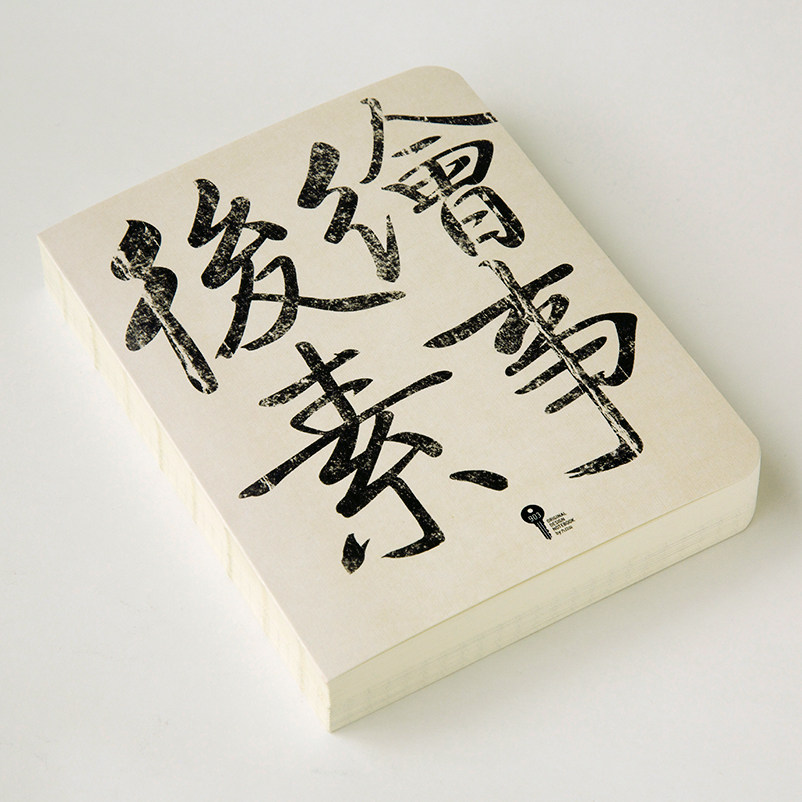 繪事
後素
901
ORIGINAL
DESIGN
NOTEBOOK